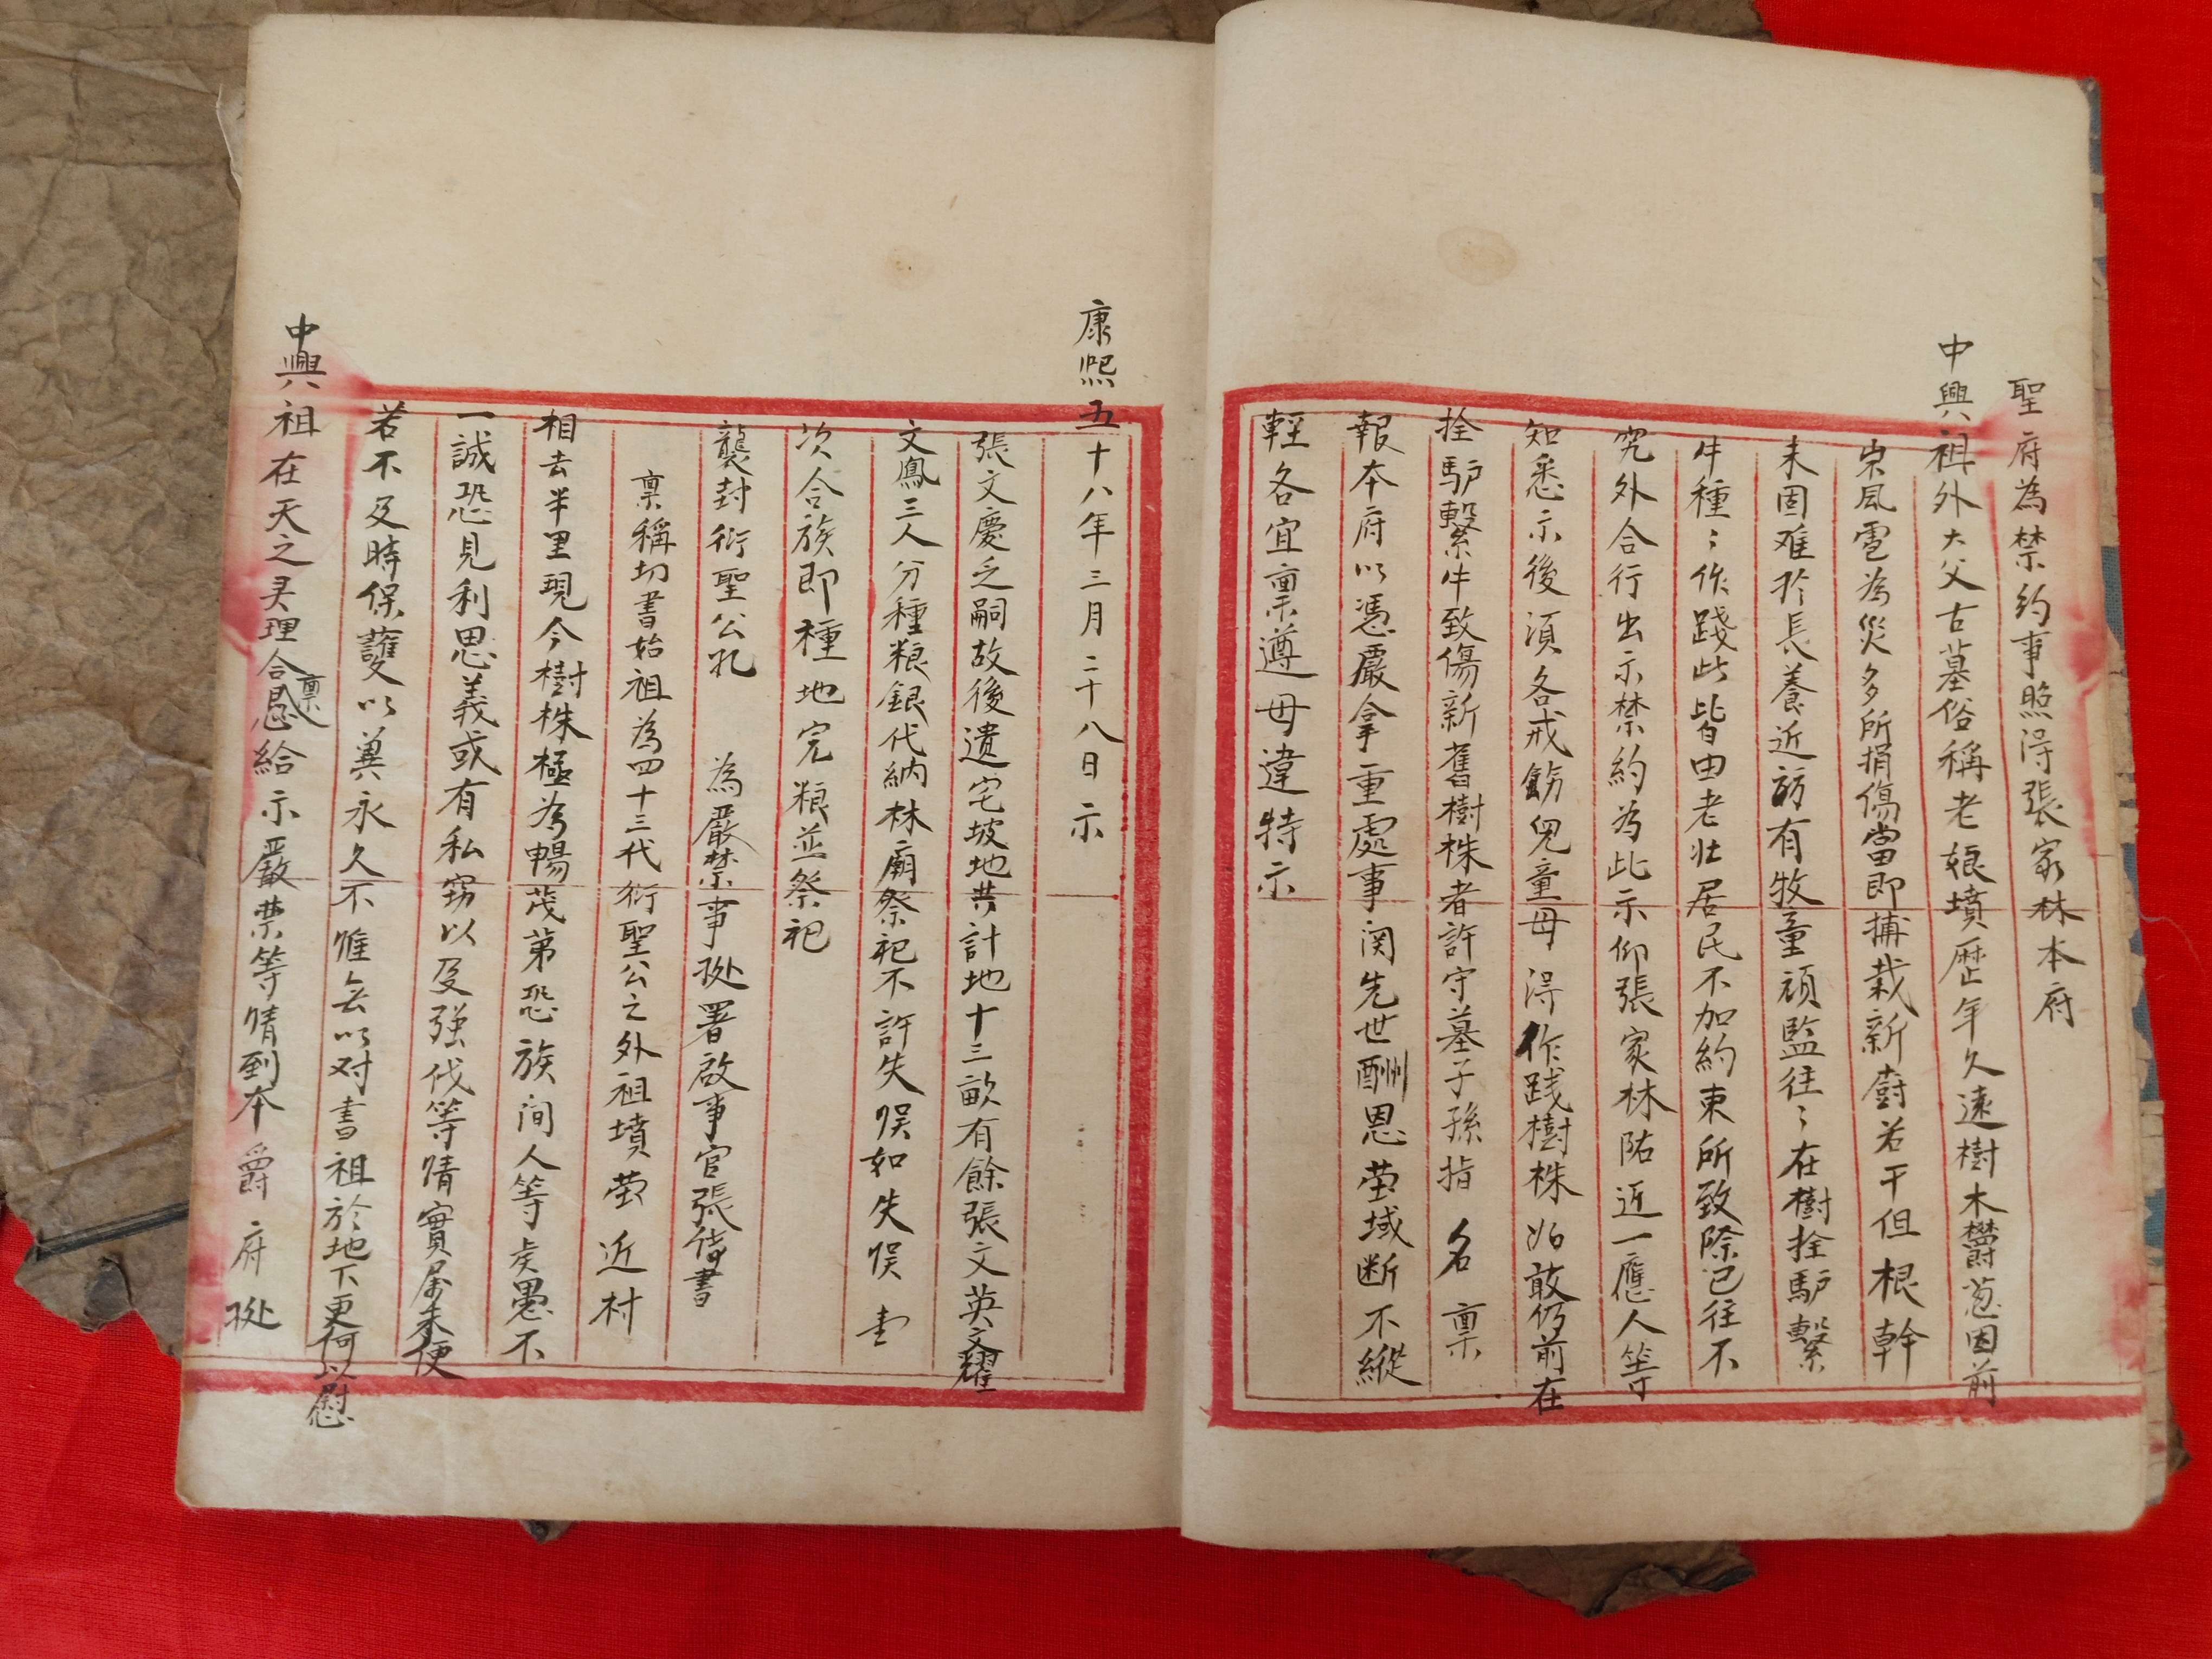 聖府為禁約事照得張家林本府
中興祖外大父古墓俗稱老娘墳歷年久遠樹木欝葱因前
宋風雹為災多所損傷當即補栽新廚若干但根幹
未固难於長養近訪有牧童頑監往々在樹拴馿繫
牛種々作踐此皆由老壮居民不加約束所致除已往不
究外合行出示禁約為此示仰張家林陥近一應人等
知悉示後須各戒飭兒童毋得作踐樹株如敢仍前在
拴馿繫牛致傷新舊樹株者許守墓子孫指名稟
報本府以憑嚴拿重處事関先世酬恩塋域断不縱
輕各宜稟遵毋違特示
康熙五十八年三月二十八日示
張文慶乏嗣故後遺宅坡地共計地十三畝有餘張文英文耀
文鳳三人分種粮銀代納林廟祭祀不許失悮如失悮
次合族即種地完粮並祭祀
襲封衍聖公孔 為嚴禁事㨿署啟事官張信書
稟稱切書始祖為四十三代衍聖公之外祖墳塋近村
相去半里現今樹株極為暢茂第恐族间人等矣愚不
一誠恐見利思義或有私窃以及强伐等情實属未便
若不及時保護以冀永久不惟無以对書祖於地下更何以慰
中興祖在天之灵理合稟懇給示嚴禁等情到本爵府㨿